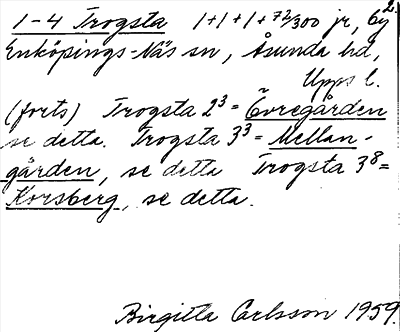 2.
1-4 Trogsta 1+1+1+72/300 jr, by
Enköpings-Näs sn, Åsunda hd,
Upps l.
(forts) Trogsta 2³ = Övregården
se detta. Trogsta 3³ = Mellan-
gården, se detta Trogsta 3⁸ =
Korsberg, se detta.
Birgitta Carlsson 1959.